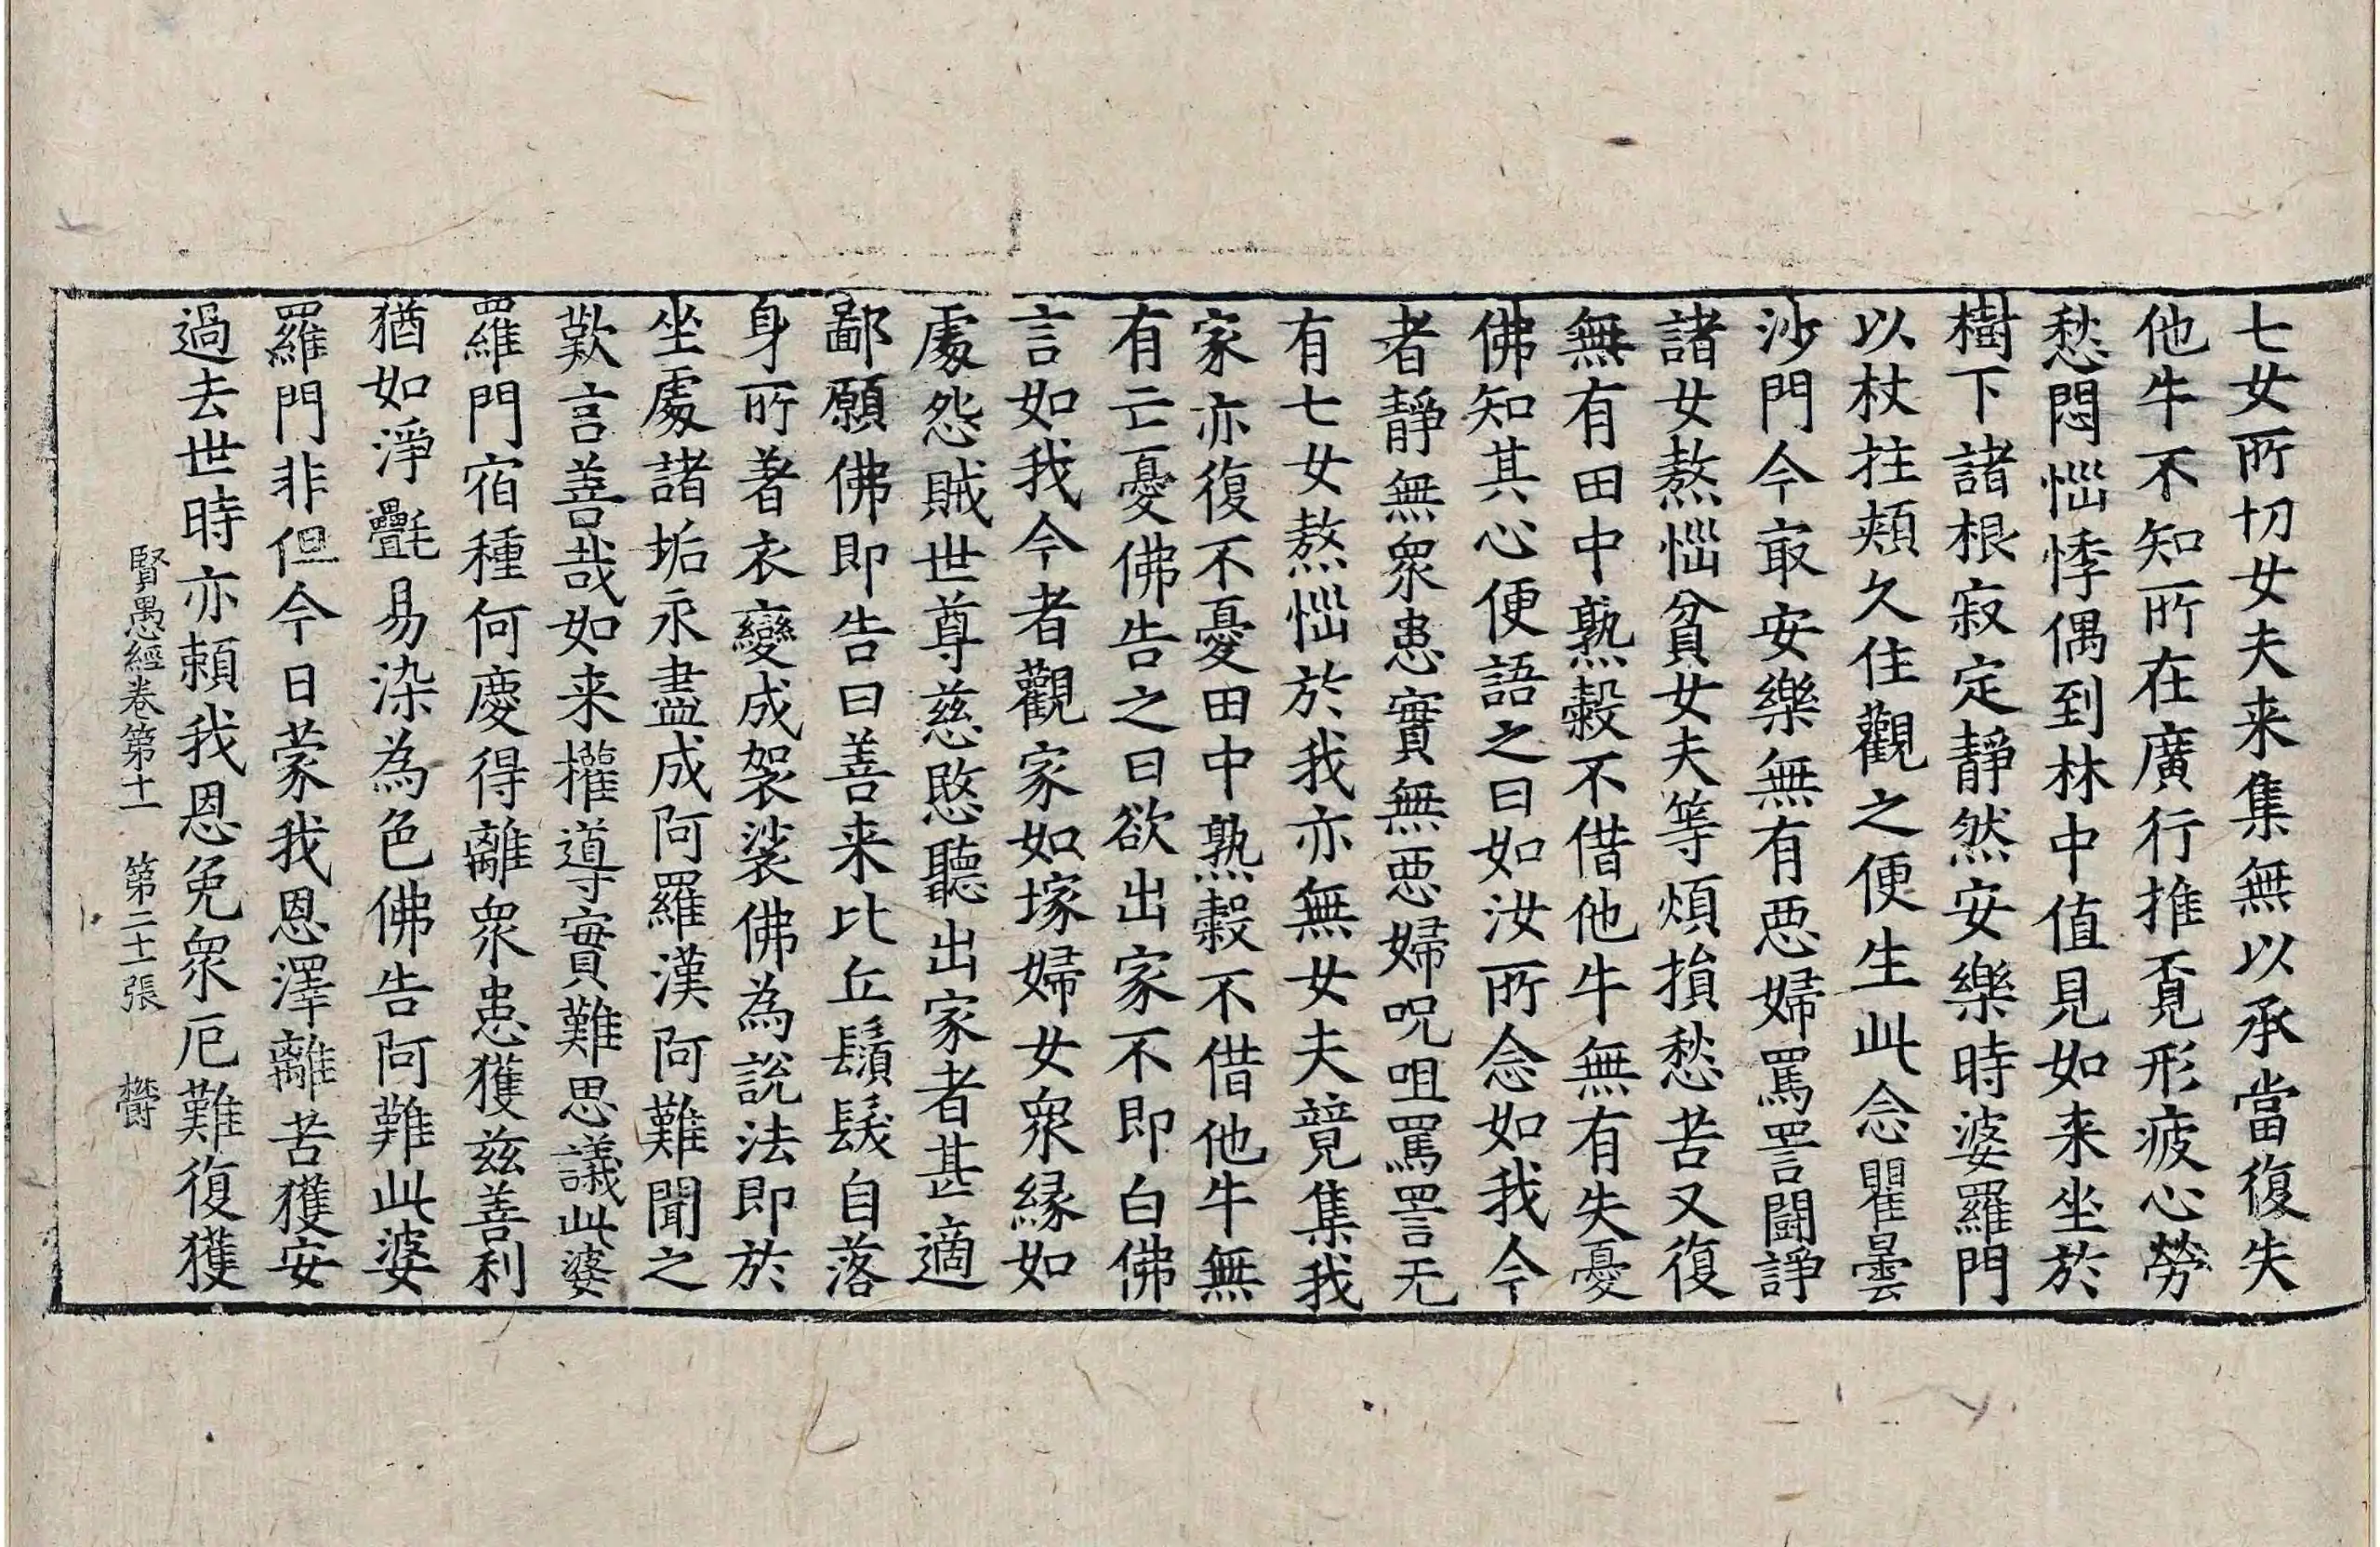 七女所切女夫来集無以承當復失
他牛不知所在廣行推覔形疲心勞
愁悶惱悸偶到林中值見如来坐於
樹下諸根寂定靜然安樂時婆羅門
以杖拄頰久住觀之便生此念瞿曇
沙門今㝡安樂無有惡婦罵詈鬪諍
諸女熬惱貧女夫等煩損愁苦又復
無有田中熟穀不借他牛無有失憂
佛知其心便語之曰如汝所念如我今
者靜無衆患實無惡婦呪咀罵詈无
有七女熬惱於我亦無女夫競集我
家亦復不憂田中熟穀不借他牛無
有亡憂佛告之曰欲出家不即白佛
言如我今者觀家如塚婦女衆縁如
處怨賊世尊慈愍聽出家者甚適
鄙願佛即告曰善来比丘鬚髮自落
身所著衣變成袈裟佛為說法即於
坐處諸垢永盡成阿羅漢阿難聞之
歎言善哉如来權導實難思議此婆
羅門宿種何慶得離衆患獲兹善利
猶如淨㲲易染為色佛告阿難此婆
羅門非但今日蒙我恩澤離苦獲安
過去世時亦頼我恩免衆厄難復獲
賢愚經卷第十一　第二十一張　欝